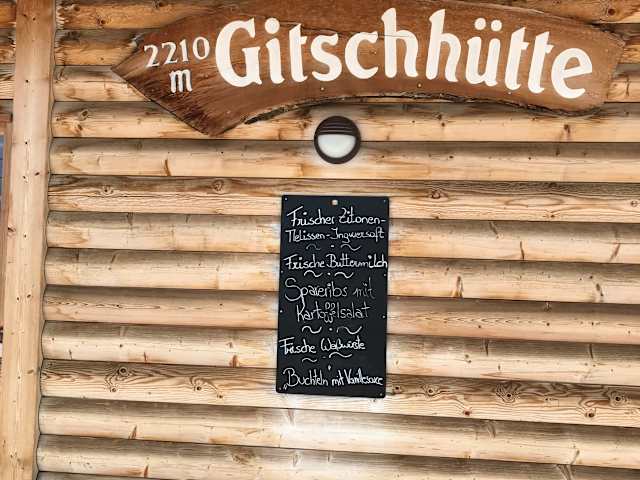 2210
m
Gitschhütte
Frischer Zitonen-
Melissen-Ingwersaft
Frische Buttermilch
Spareribs mit
Kartoffelsalat
Frische Weißwürste
"Buchteln" mit Vanillesauce